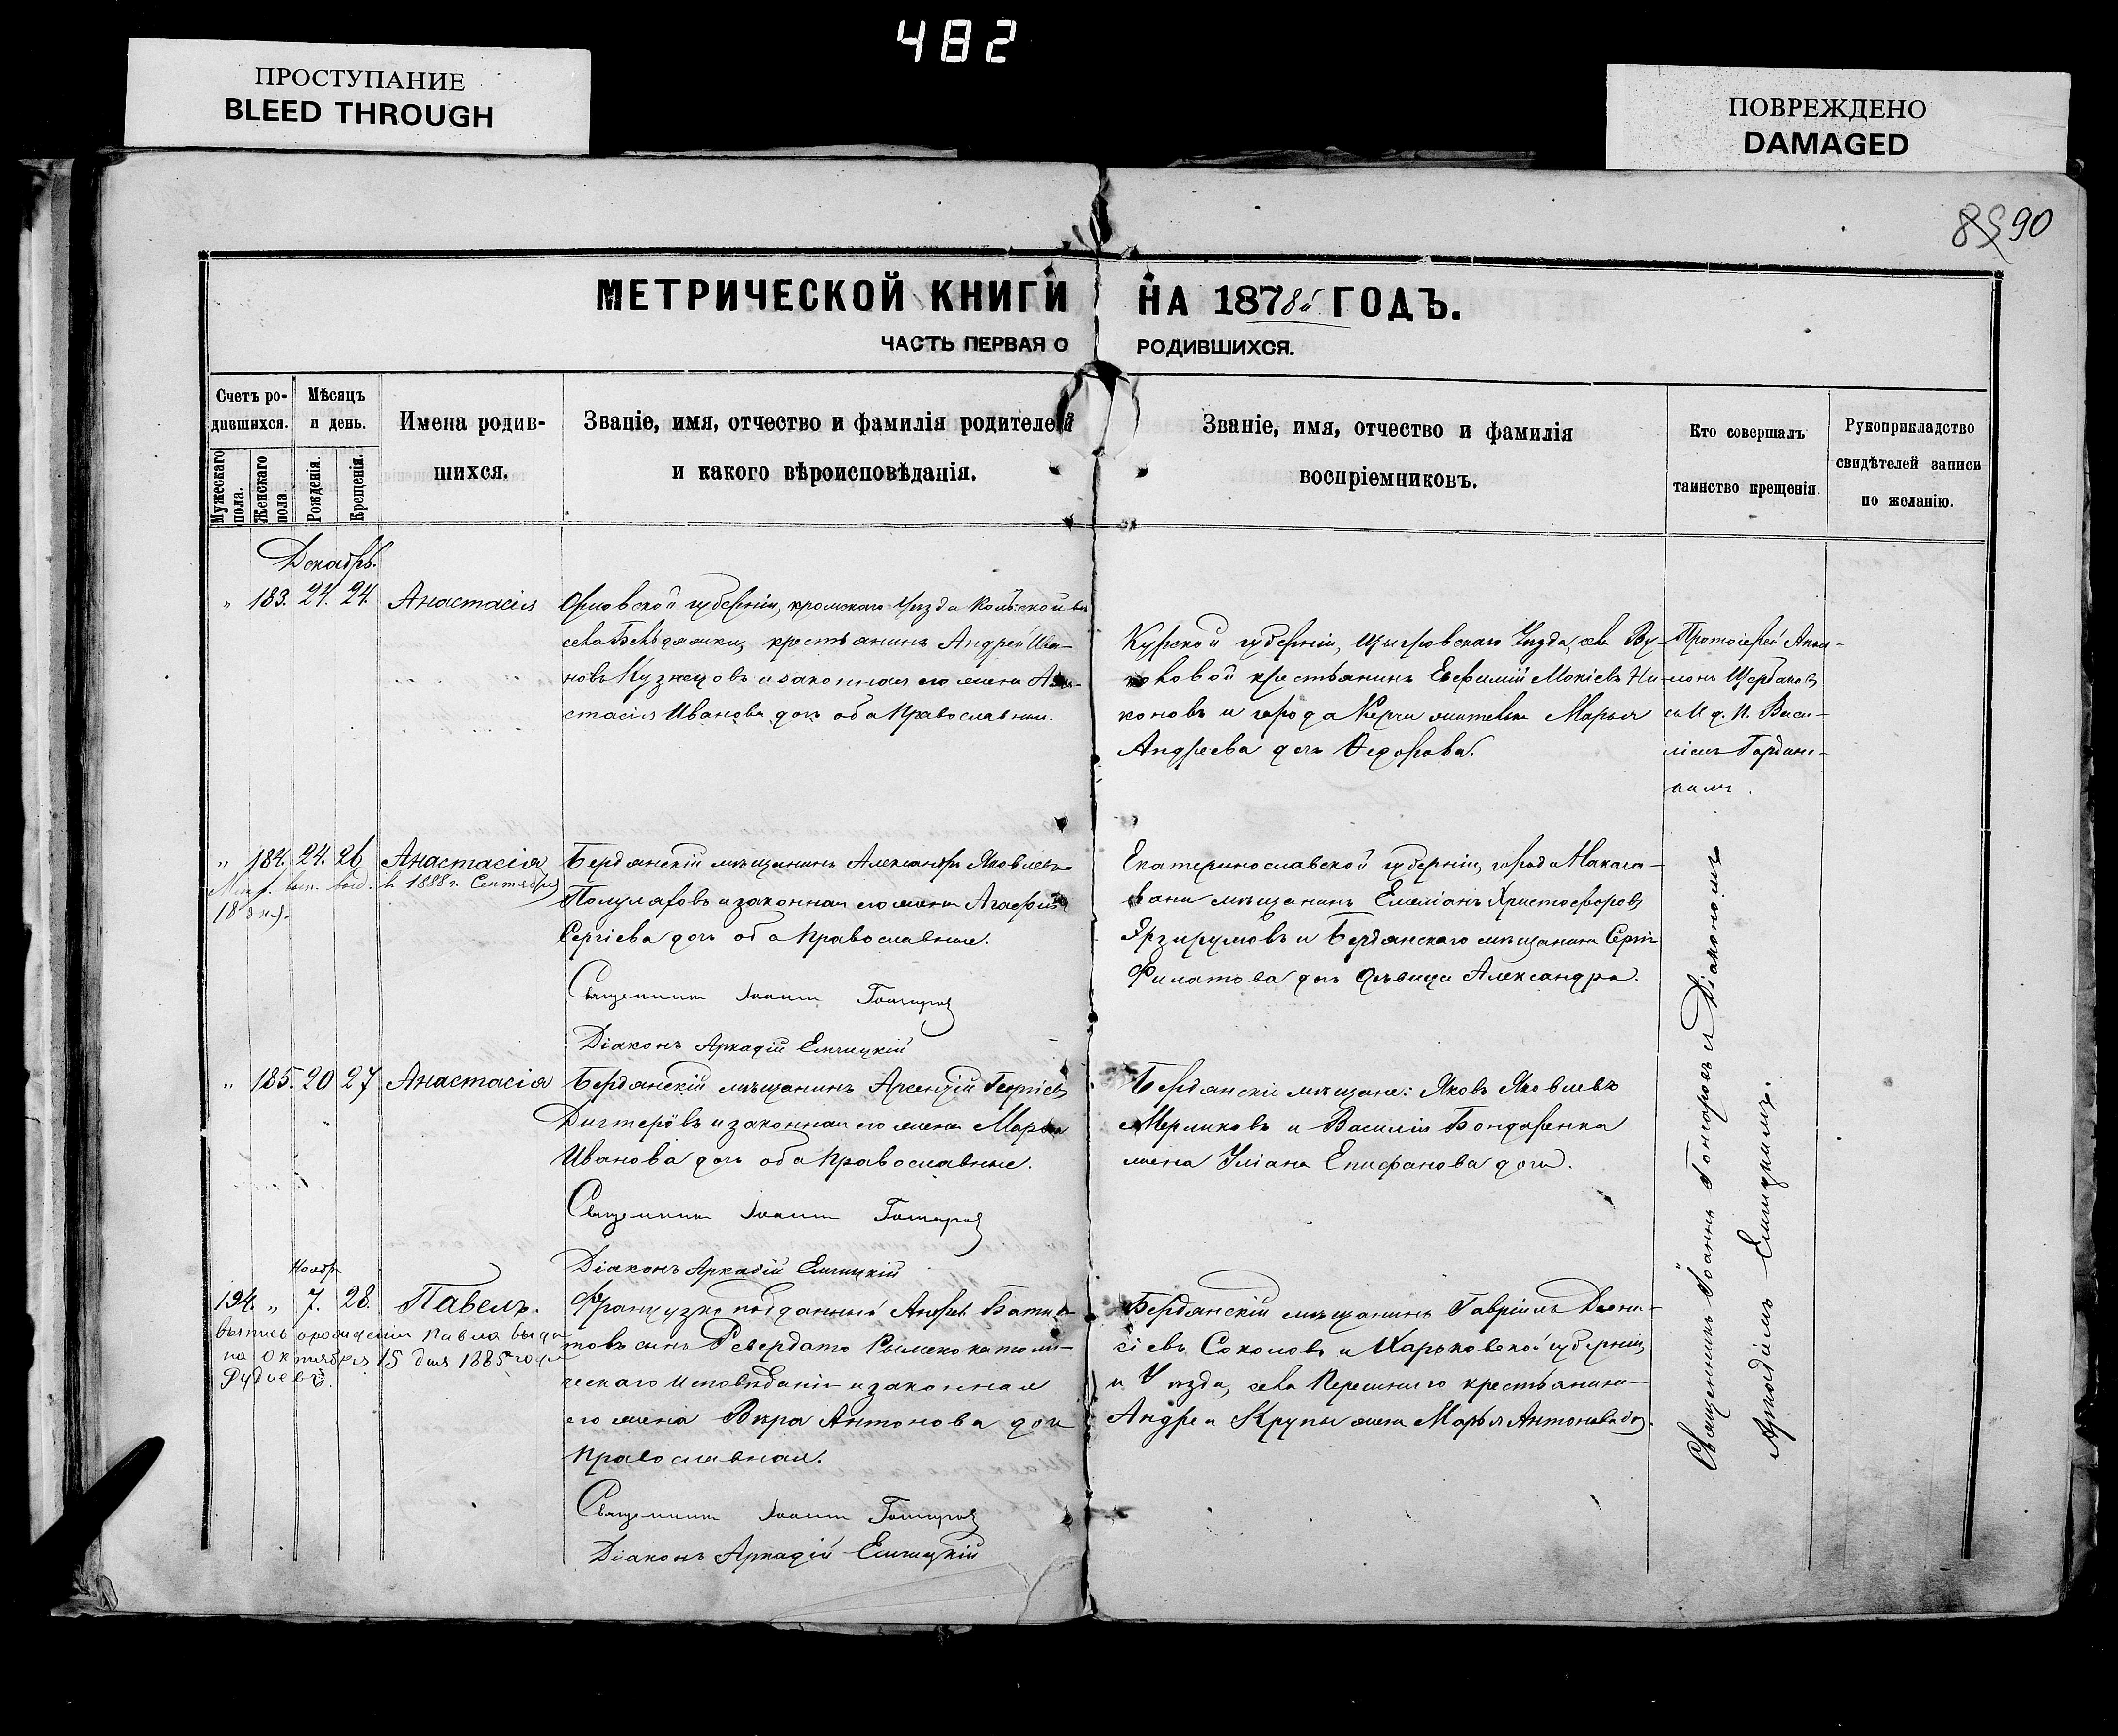 482
ПРОСТУПАНИЕ
BLEED THROUGH
ПОВРЕЖДЕНО
DAMAGED
89 90
МЕТРИЧЕСКОЙ КНИГИ НА 1878й ГОДЪ.
ЧАСТЬ ПЕРВАЯ О РОДИВШИХСЯ.
Счетъ ро-
дившихся.
Мужескаго пола.
Женскаго пола.
Мѣсяцъ
и день.
Рожденія.
Крещенія.
Имена родив-
шихся.
Званіе, имя, отчество и фамилія родителей
и какого вѣроисповѣданія.
Званіе, имя, отчество и фамилія
воспріемниковъ.
Кто совершалъ
таинство крещенія.
Рукоприкладство
свидѣтелей записи
по желанію.
Декабрь.
" 183. 24. 24. Анастасія
Орловской губерніи, кромскаго Уѣзда
села крестьянинъ Андрей Ива-
новъ Кузнецовъ и законная его жена Ана-
стасія Иванова дочь оба Православные.
Курской губерніи, Щигровскаго Уѣзда, села
крестьянинъ Евфимій Мокіевъ Ни-
коновъ и города Керчи жителька Марья
Андреева дочь Федорова.
Протоіерей
Щербаковъ
съ И. д. П. Васи-
ліемъ
" 184. 24. 26 Анастасія
Метр. вып. выд. в 1888 г. Сентября
18 дня.
Бердянскій мѣщанинъ Александръ Яковлевъ
Полуляховъ и законная его жена Агафія
Сергіева дочь оба Православные.
Священникъ Іоаннъ Гончаровъ
Діаконъ Аркадій Елчицкій
Екатеринославской губерніи, города
мѣщанинъ Емеліанъ Христофоровъ
Эрзирумовъ и Бердянскаго мѣщанина Сергія
Филатова дочь дѣвица Александра.
" 185. 20 27 Анастасія
Бердянскій мѣщанинъ Арсентій Георгіевъ
Дихтерёвъ и законная его жена Марья
Иванова дочь оба Православные.
Священникъ Іоаннъ Гончаровъ
Діаконъ Аркадій Елчицкій
Бердянскіе мѣщане: Яковъ Яковлевъ
Мерликовъ и Василія Бондаренка
жена Уліана Епифанова дочь.
Ноябр
194. " 7. 28. Павелъ.
выпись о рожденіи Павла выда
на октября 15 дня 1885 года
Французкоподданный
товъ сынъ Ревердато Римскокатоли-
ческаго Исповѣданія и законная
его жена Вѣра Антонова дочь
Православная.
Священникъ Іоаннъ Гончаровъ
Діаконъ Аркадій Елчицкій
Бердянскій мѣщанинъ Гавріилъ Діони-
сіевъ Соколовъ и Харьковской губерніи,
и Уѣзда, села крестьянина
Андрея Крупы жена Марья Антонова дочь.
Священникъ Іоаннъ Гончаровъ съ Діакономъ
Аркадіемъ Елчицкимъ.